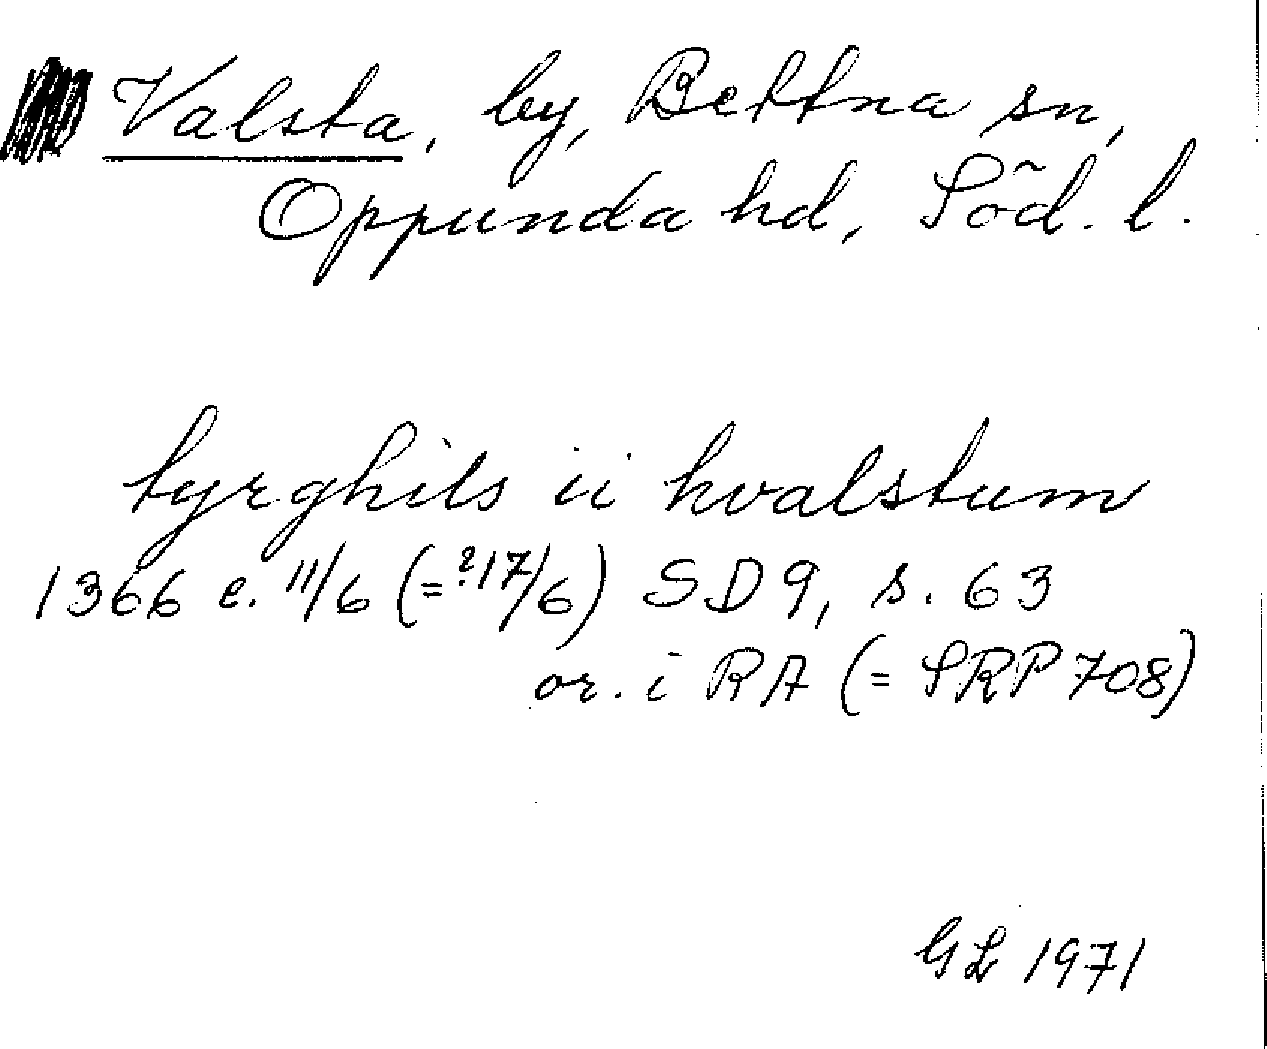 Valsta, by, Bettna sn,
Oppunda hd, Söd. l.
tyrghils ii hvalstum
1366 e. 11/6 (=?17/6) SD 9, s. 63
or. i RA (= SRP 708)
GL 1971